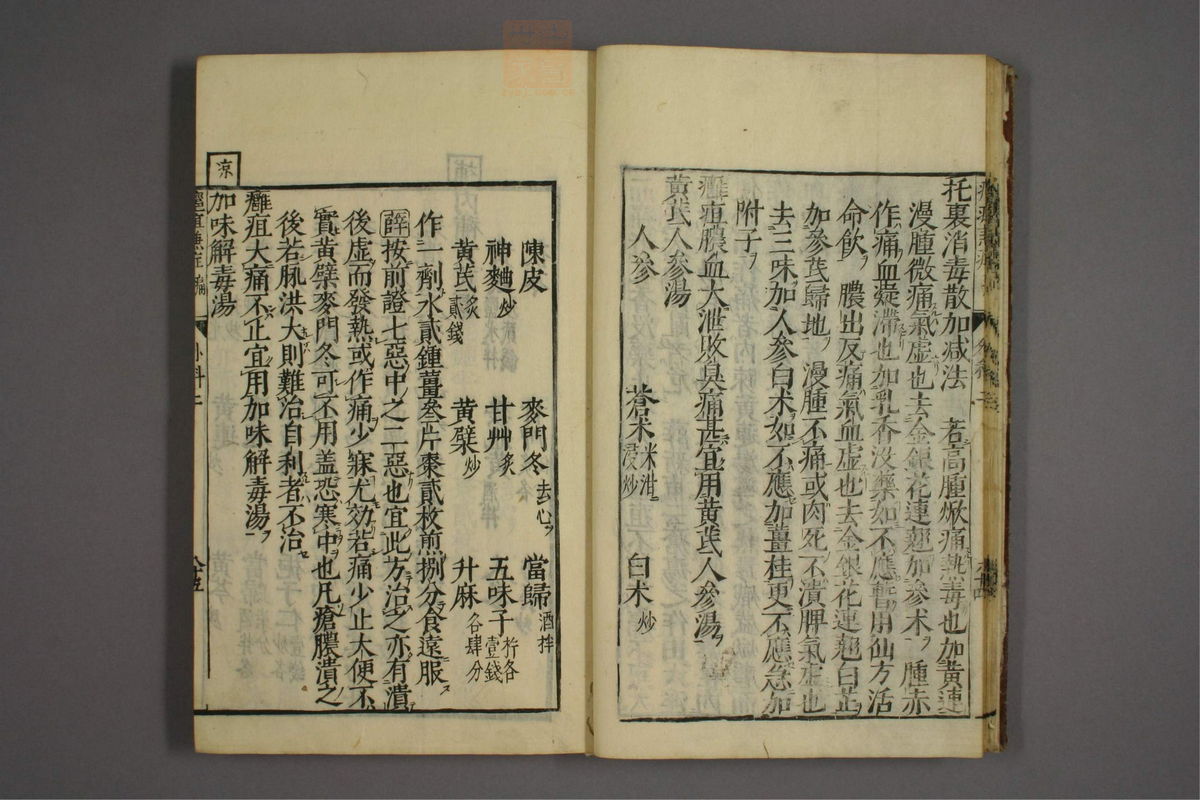 托裏消毒散加減法　若高腫焮痛熱毒也加黄連
漫腫微痛氣虚也去金銀花連翹加參术　腫赤
作痛血凝滯也加乳香没藥如不應暫用仙方活
命飲　膿出反痛氣血虚也去金銀花連翹白芷
加參芪歸地　漫腫不痛或肉死不潰脾氣虚也
去三味加人參白术如不應加薑桂更不應急加
附子
癰疽膿血大泄敗臭痛甚宜用黄芪人參湯
黄芪人參湯
人參　蒼术米泔浸炒　白术炒
陳皮　麥門冬去心　當歸酒拌
神麯炒　甘艸炙　五味子杵各壹錢
黄芪炙貳錢　黄檗炒　升麻各肆分
作一劑水貳鍾薑叁片棗貳枚煎捌分食遠服
薛按前證七惡中之二惡也宜此方治之亦有潰
後虚而發熱或作痛少寐尤効若痛少止大便不
實黄檗麥門冬可不用盖恐寒中也凡瘡膿潰之
後若脉洪大則難治自利者不治
癰疽大痛不止宜用加味解毒湯
凉
加味解毒湯
外科二